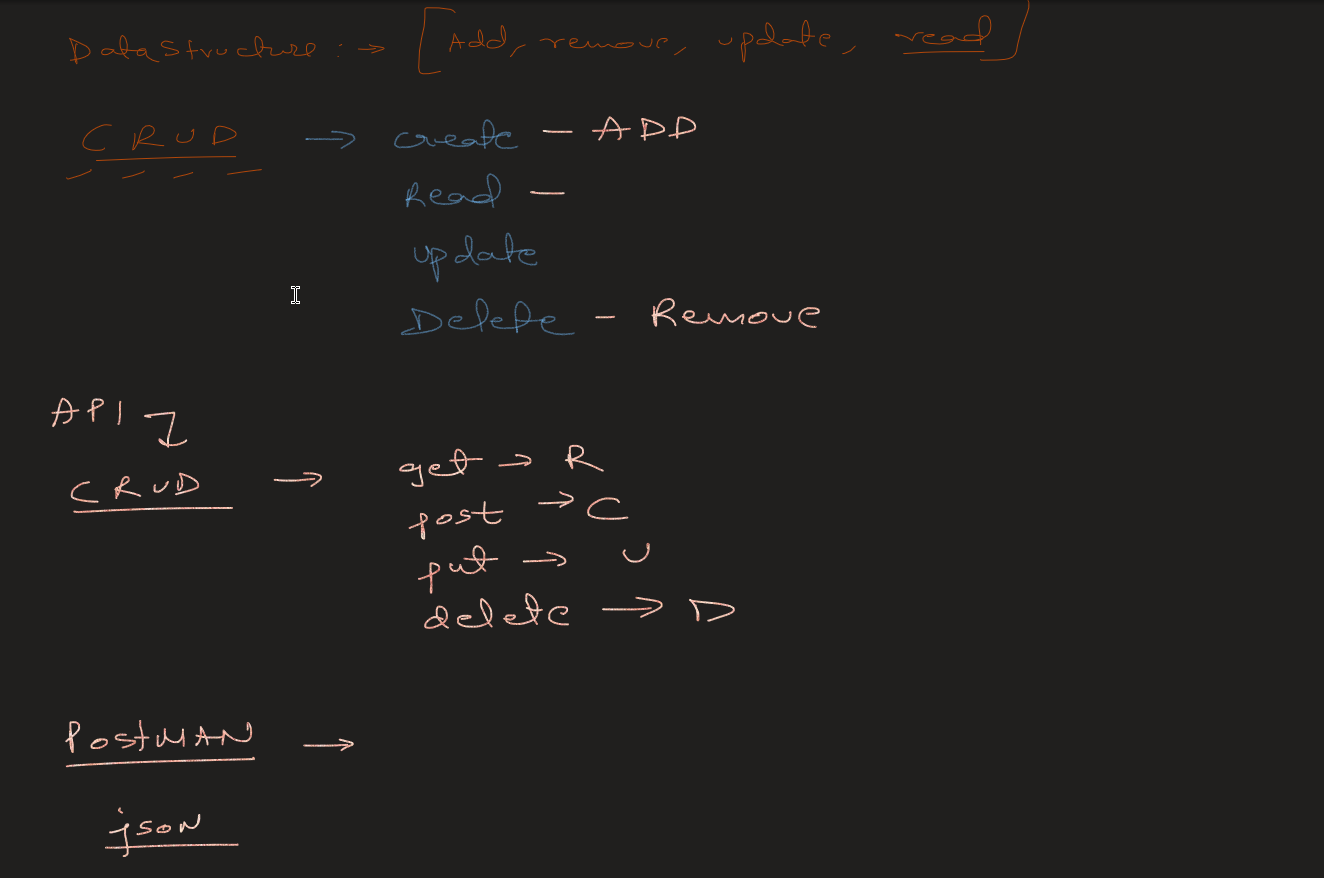 DataStructure : → [Add, remove, update, read]
CRUD → create — ADD
Read —
update
Delete – Remove
API
CRUD → get → R
post → C
put → U
delete → D
PostMAN →
json